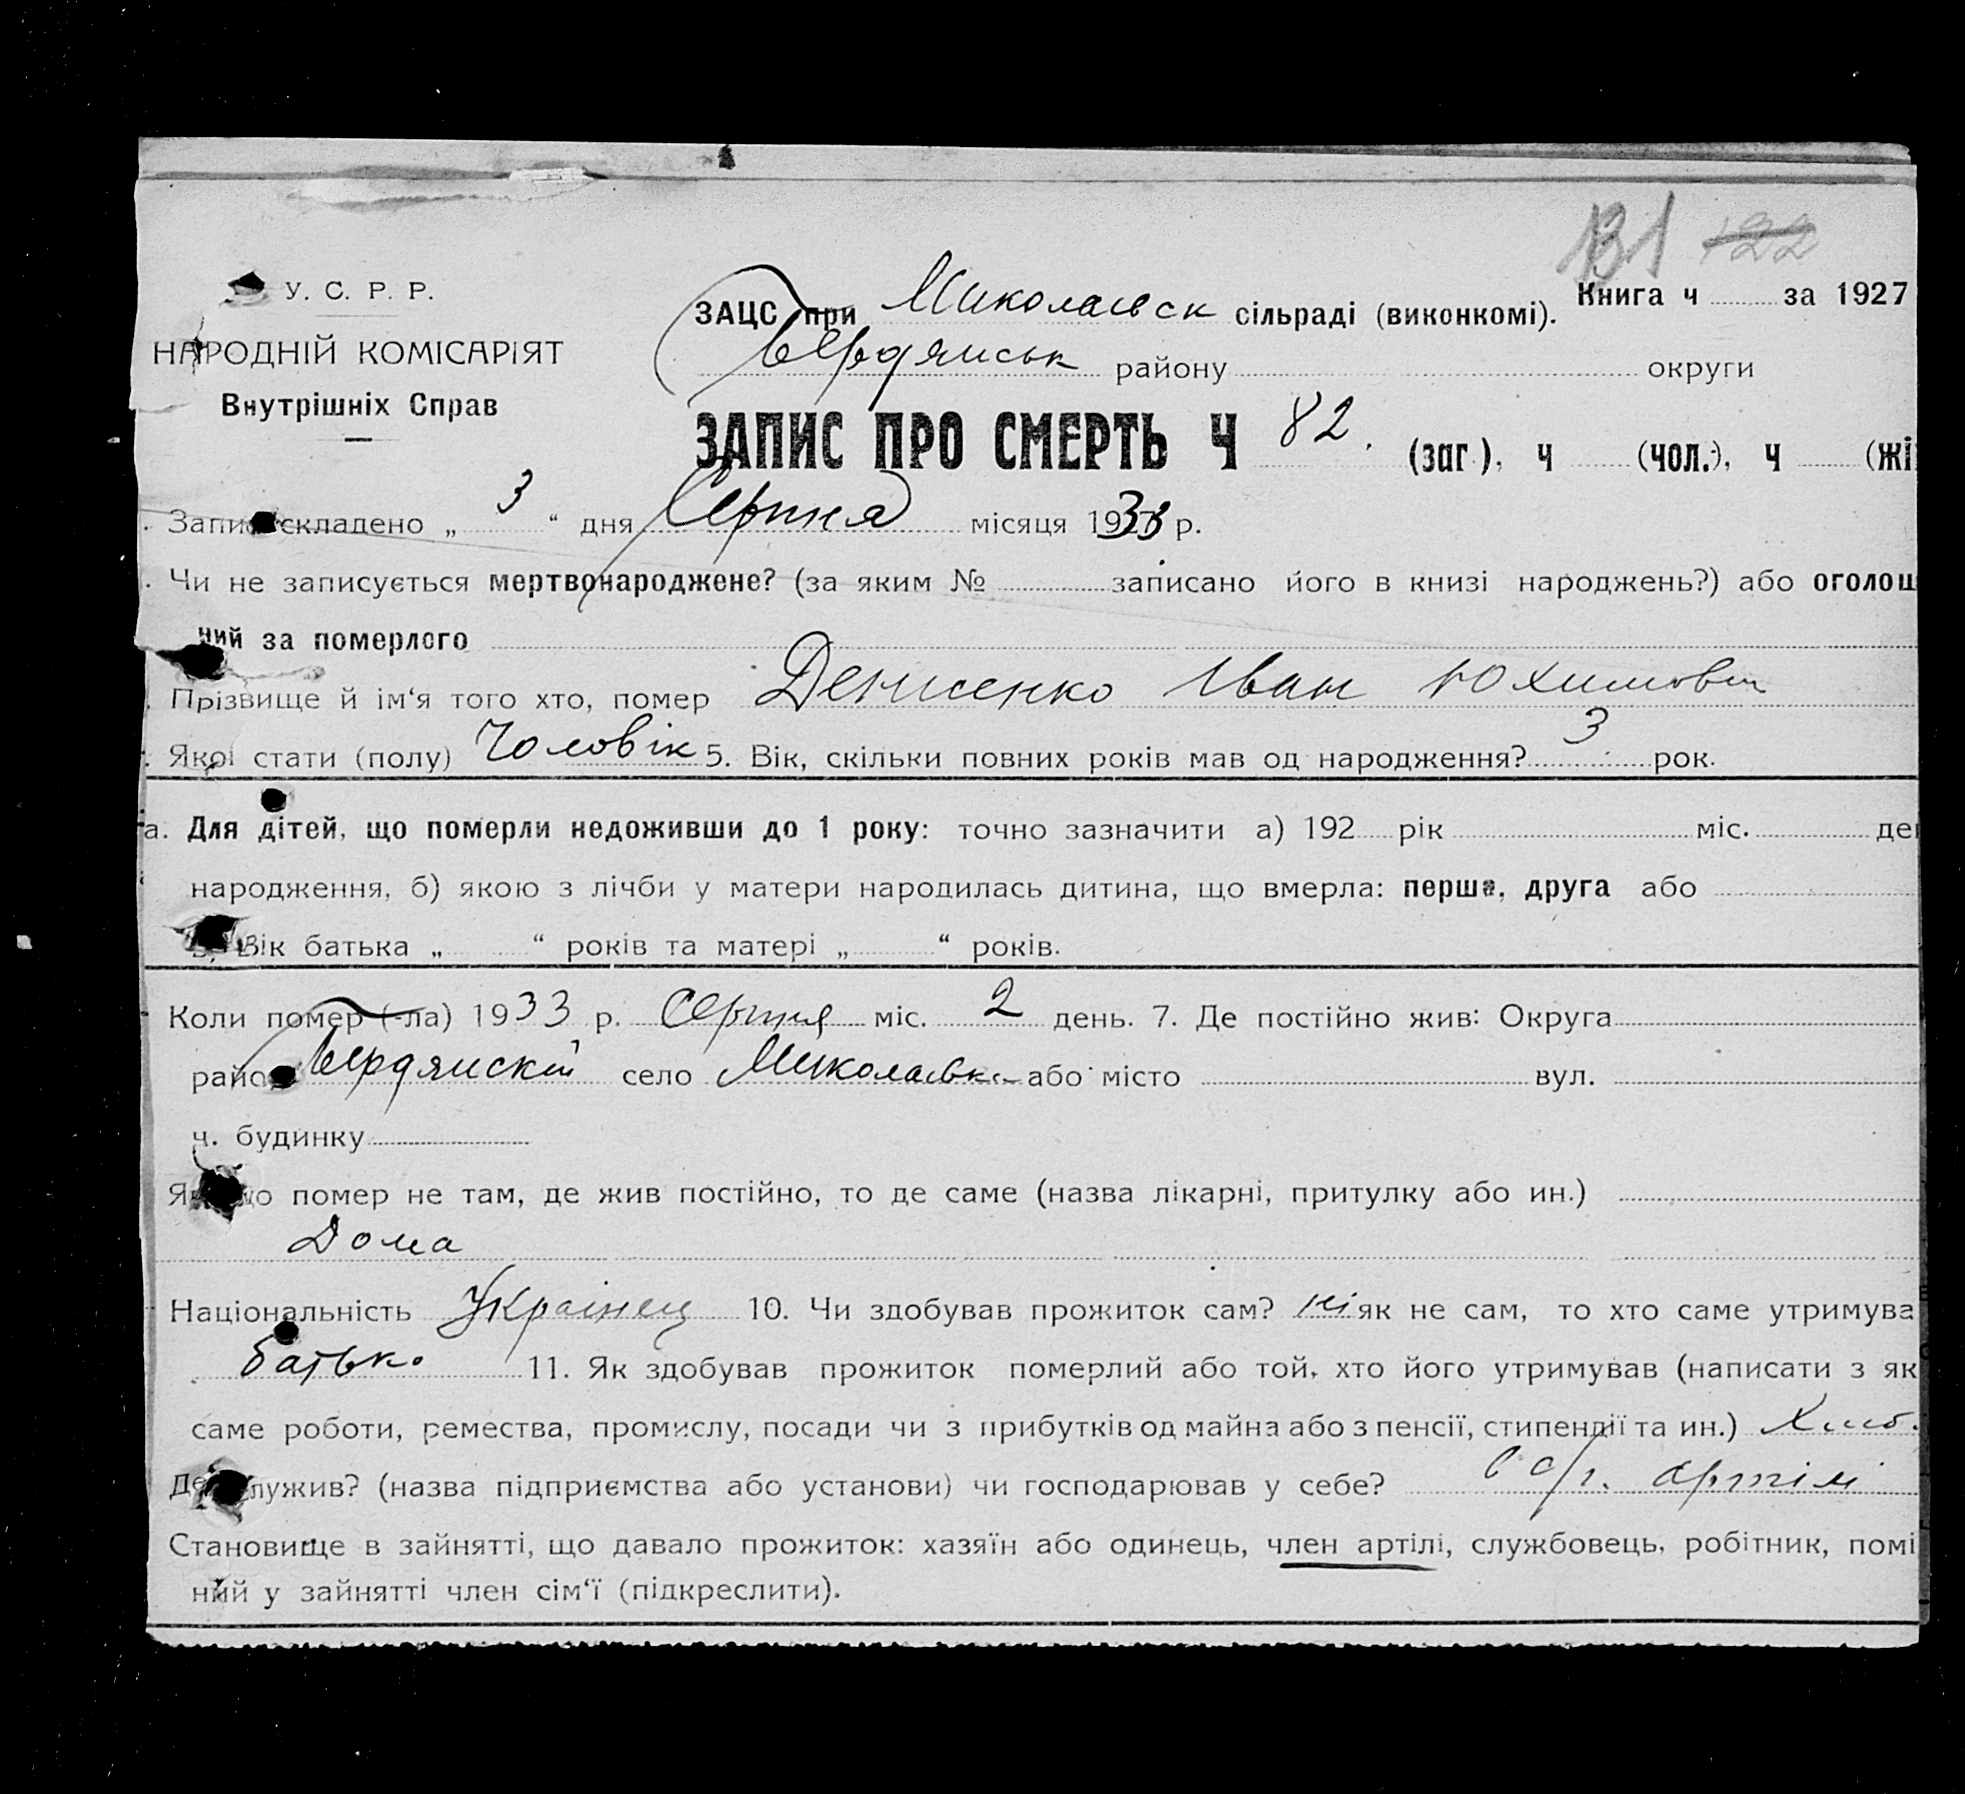 131 122
У. С. Р. Р.
НАРОДНІЙ КОМІСАРІЯТ
Внутрішніх Справ
Книга ч за 1927
ЗАЦС при Миколаївск сільраді (виконкомі).
Бердянськ району округи
ЗАПИС ПРО СМЕРТЬ Ч 82. (заг.), ч (чол.), ч (жі
Запис складено „ 3 “ дня Серпня місяця 1933 р.
Чи не записується мертвонароджене? (за яким № записано його в книзі народжень?) або оголош
ний за померлого
Прізвище й ім‘я того хто, помер Денисенко Іван Юхимович
Якої стати (полу) Чоловік 5. Вік, скільки повних років мав од народження? 3 рок.
а. Для дітей, що померли недоживши до 1 року: точно зазначити а) 192 рік міс. де
народження, б) якою з лічби у матери народилась дитина, що вмерла: перша, друга або
в) Вік батька „ “ років та матері „ “ років.
Коли помер (-ла) 1933 р. Серпня міс. 2 день. 7. Де постійно жив: Округа
район Бердянский село Миколаївка або місто вул.
ч. будинку
Якщо помер не там, де жив постійно, то де саме (назва лікарні, притулку або ин.)
Дома
Національність Украінец 10. Чи здобував прожиток сам? ні як не сам, то хто саме утримува
батько 11. Як здобував прожиток померлий або той, хто його утримував (написати з як
саме роботи, ремества, промислу, посади чи з прибутків од майна або з пенсії, стипендії та ин.) Хліб.
Де служив? (назва підприємства або установи) чи господарював у себе? в с/г. артілі
Становище в зайнятті, що давало прожиток: хазяїн або одинець, член артілі, службовець, робітник, помі
ний у зайнятті член сім‘ї (підкреслити).